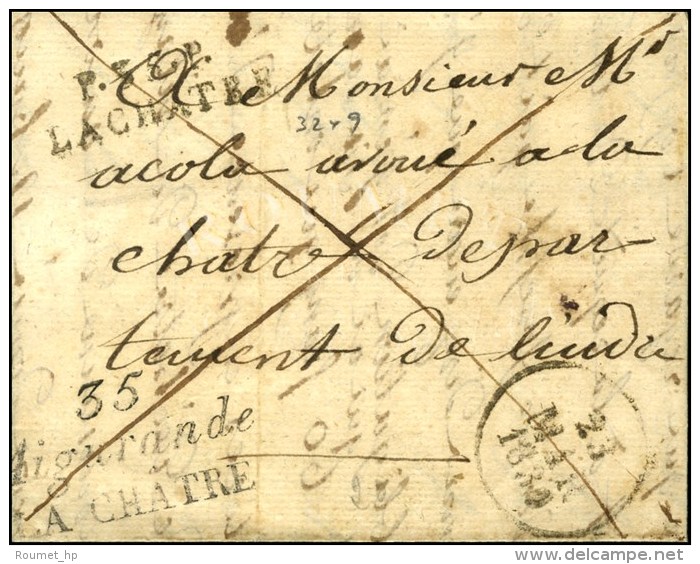 P.35.P.
LACHATRE
A Monsieur Mr
32 + 9
acola avoué a la
chatre depar
tement de lindre
35
Aigurande
LA CHÂTRE
23
MAI
1830
Roumet_hp
© delcampe.net